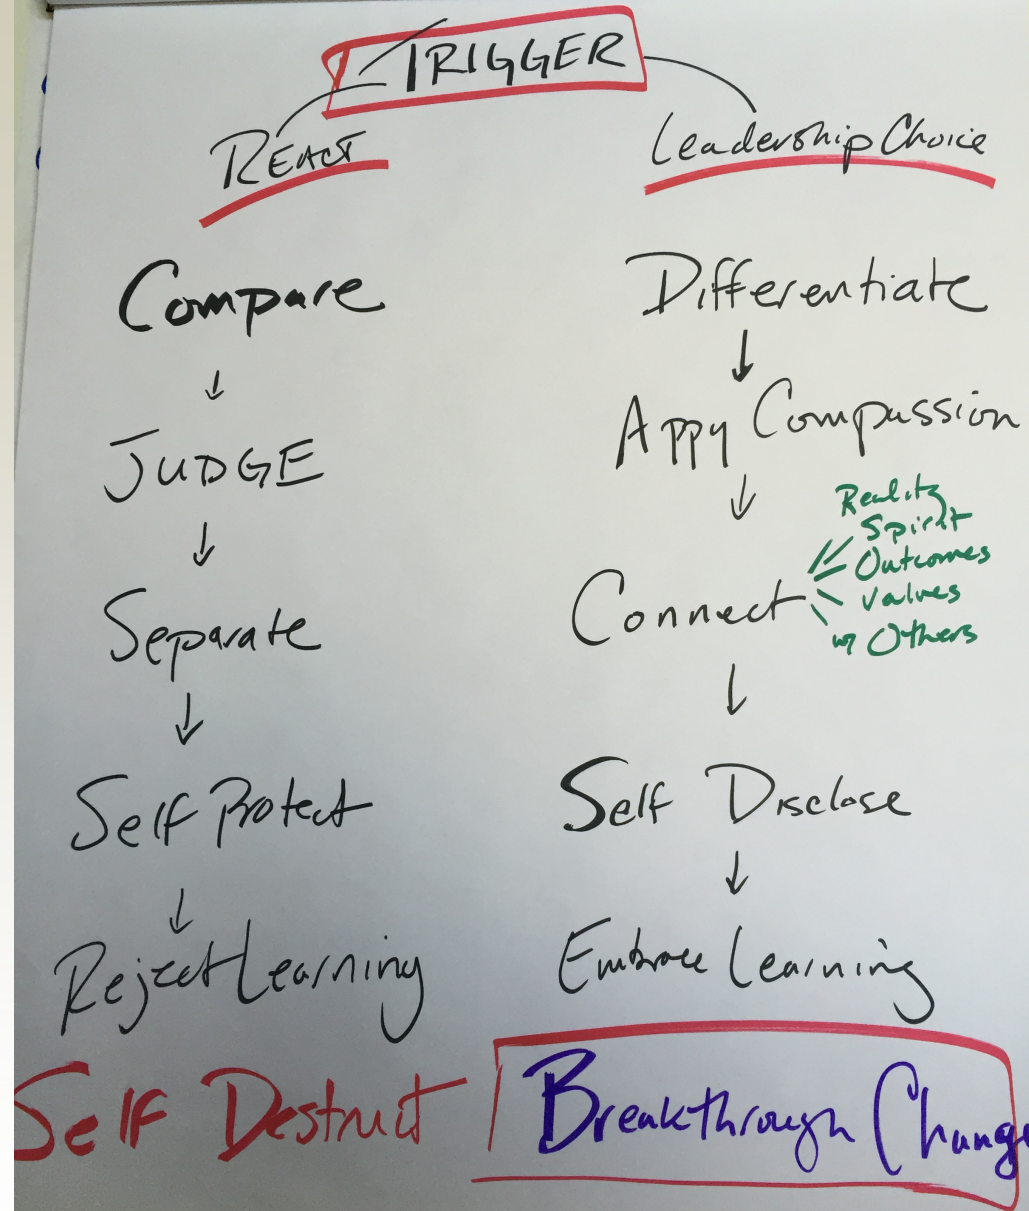 TRIGGER
REACT
Leadership Choice
Compare
JUDGE
Separate
Self Protect
Reject Learning
Self Destruct
Differentiate
Appy Compassion
Connect
Reality
Spirit
Outcomes
Values
w/ Others
Self Disclose
Embrace Learning
Breakthrough Change